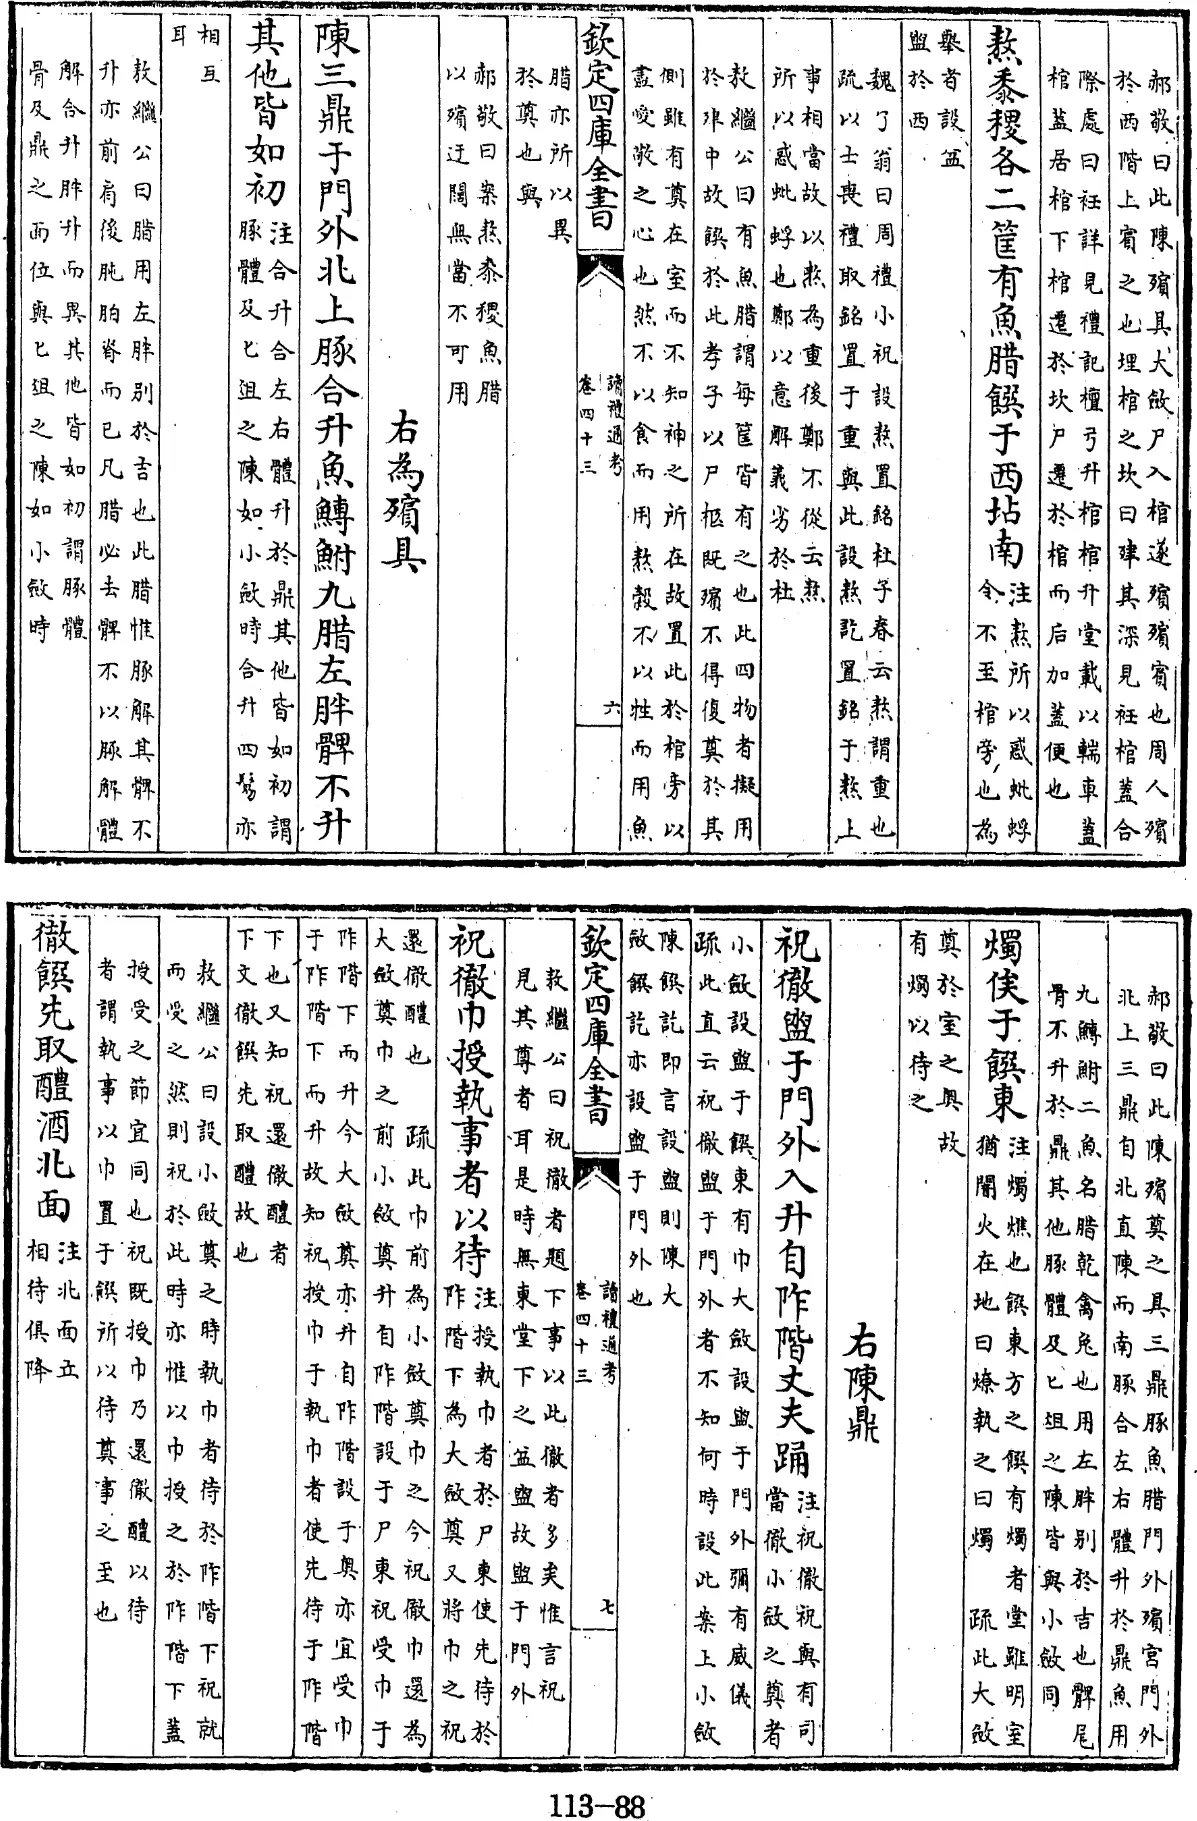 郝敬曰此陳殯具大斂尸入棺遂殯殯賓也周人殯
於西階上賓之也埋棺之坎曰肂其深見衽棺蓋合
際處曰衽詳見禮記檀弓升棺棺升堂載以輴車蓋
棺蓋居棺下棺遷於坎尸遷於棺而后加蓋便也
熬黍稷各二筐有魚腊饌于西坫南注熬所以惑蚍蜉
令不至棺旁也為
舉者設盆
盥於西
魏了翁曰周禮小祝設熬置銘杜子春云熬謂重也
疏以士喪禮取銘置于重與此設熬訖置銘于熬上
事相當故以熬為重後鄭不從云熬
所以惑蚍蜉也鄭以意解義劣於杜
敖繼公曰有魚腊謂每筐皆有之也此四物者擬用
於肂中故饌於此孝子以尸柩既殯不得復奠於其
側雖有奠在室而不知神之所在故置此於棺旁以
盡愛敬之心也然不以食而用熬穀不以牲而用魚
欽定四庫全書
讀禮通考
卷四十三
六
腊亦所以異
於奠也與
郝敬曰案熬黍稷魚腊
以殯迂闊無當不可用
右為殯具
陳三鼎于門外北上豚合升魚鱄鮒九腊左胖髀不升
其他皆如初注合升合左右體升於鼎其他皆如初謂
豚體及匕俎之陳如小斂時合升四鬄亦
相互
耳
敖繼公曰腊用左胖別於吉也此腊惟豚解其髀不
升亦前肩後肫胉脊而已凡腊必去髀不以豚解體
解合升胖升而異其他皆如初謂豚體
骨及鼎之面位與匕俎之陳如小斂時
郝敬曰此陳殯奠之具三鼎豚魚腊門外殯宮門外
北上三鼎自北直陳而南豚合左右體升於鼎魚用
九鱄鮒二魚名腊乾禽兔也用左胖別於吉也髀尾
骨不升於鼎其他豚體及匕俎之陳皆與小斂同
燭俟于饌東注燭燋也饌東方之饌有燭者堂雖明室
猶闇火在地曰燎執之曰燭　疏此大斂
奠於室之奧故
有燭以待之
右陳鼎
祝徹盥于門外入升自阼階丈夫踊注祝徹祝與有司
當徹小斂之奠者
小斂設盥于饌東有巾大斂設盥于門外彌有威儀
疏此直云祝徹盥于門外者不知何時設此案上小斂
陳饌訖即言設盥則陳大
斂饌訖亦設盥于門外也
欽定四庫全書
讀禮通考
卷四十三
七
敖繼公曰祝徹者題下事以此徹者多矣惟言祝
見其尊者耳是時無東堂下之盆盥故盥于門外
祝徹巾授執事者以待注授執巾者於尸東使先待於
阼階下為大斂奠又將巾之祝
還徹醴也　疏此巾前為小斂奠巾之今祝徹巾還為
大斂奠巾之前小斂奠升自阼階設于尸東祝受巾于
阼階下而升今大斂奠亦升自阼階設于奧亦宜受巾
于阼階下而升故知祝授巾于執巾者使先待于阼階
下也又知祝還徹醴者
下文徹饌先取醴故也
敖繼公曰設小斂奠之時執巾者待於阼階下祝就
而受之然則祝於此時亦惟以巾授之於阼階下蓋
授受之節宜同也祝既授巾乃還徹醴以待
者謂執事以巾置于饌所以待奠事之至也
徹饌先取醴酒北面注北面立
相待俱降
113—88